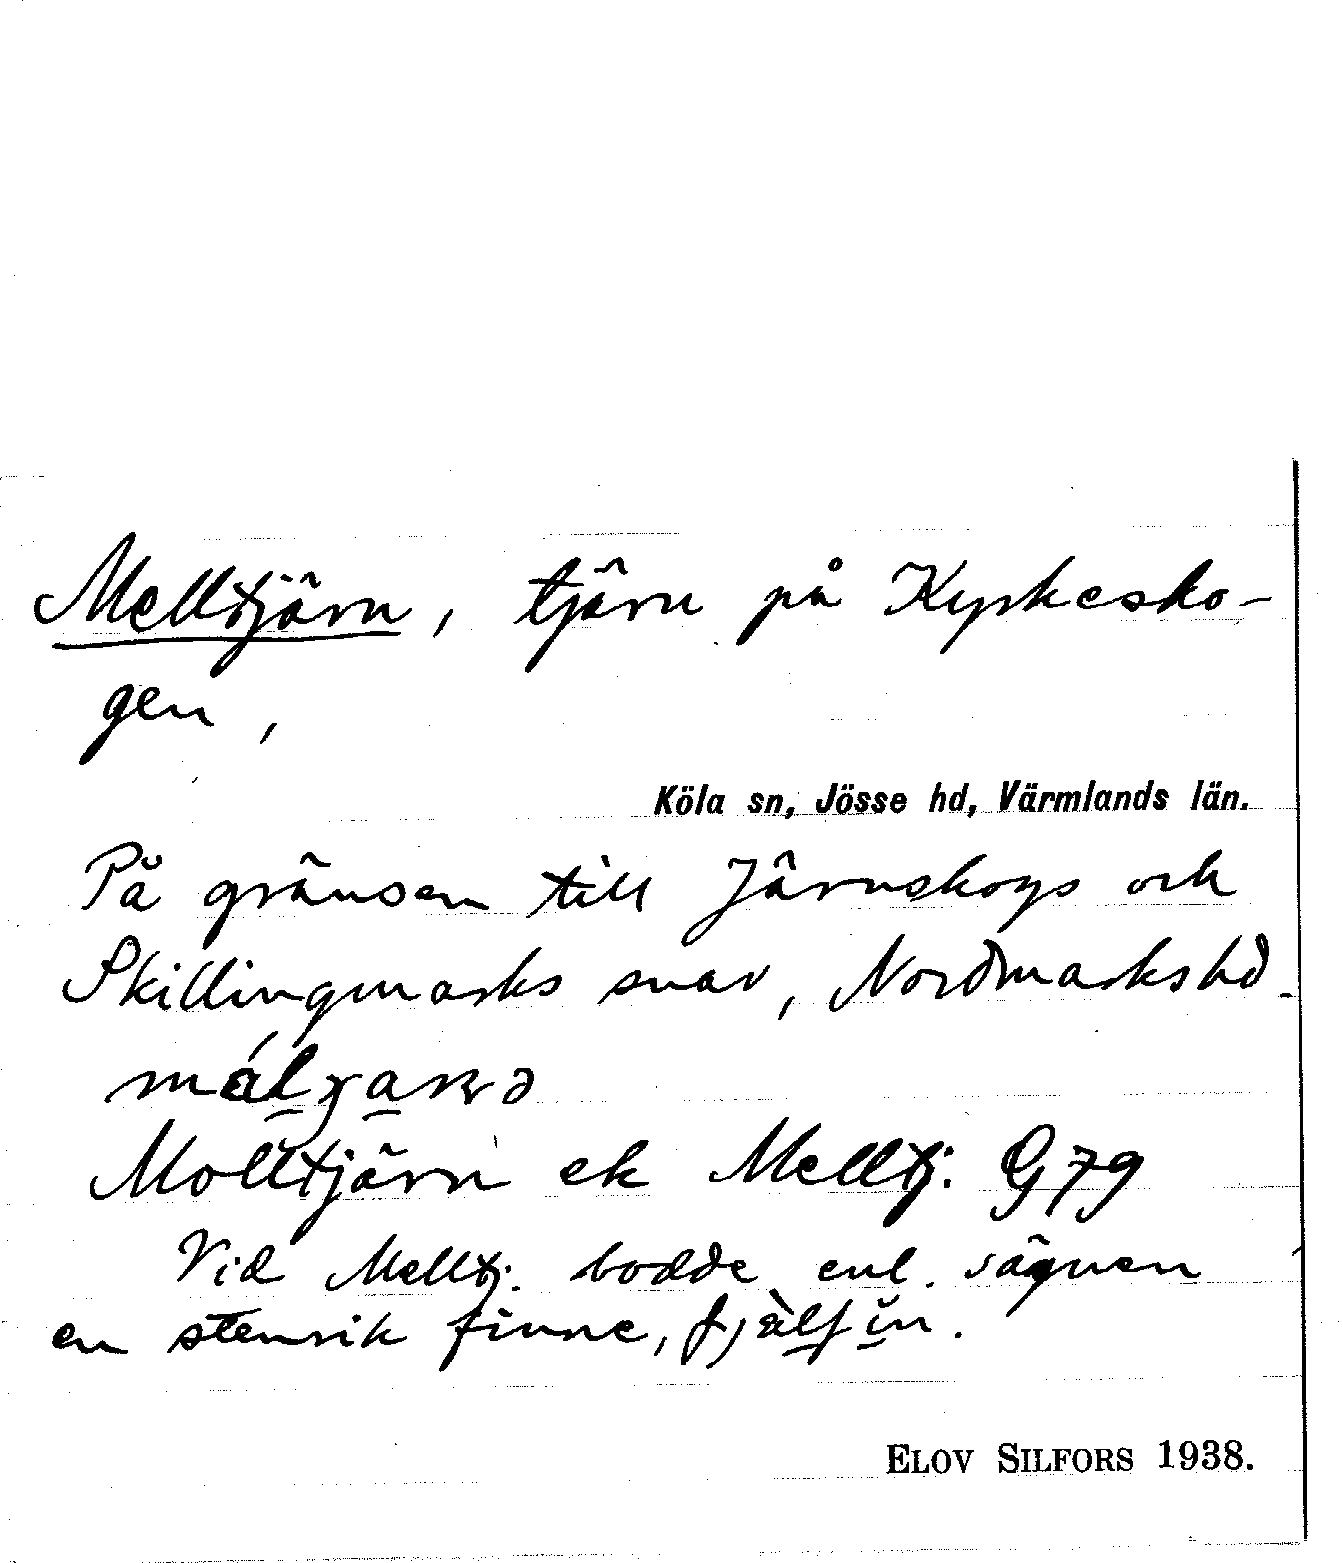 Melltjärn, tjärn på Kyrkesko-
gen,
Köla sn, Jösse hd, Värmlands län.
På gränsen till Järnskogs och
Skillingmarks snar, Nordmarks hd.
Molltjärn ek Melltj. G79
Vid Melltj. bodde enl. sägnen
en stenrik finne,
ELOV SILFORS 1938.